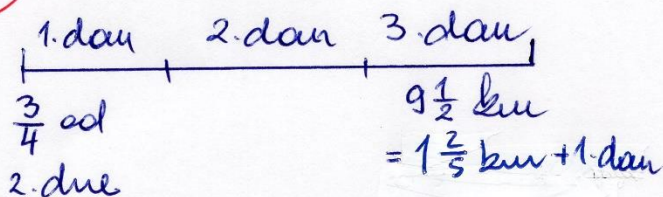 1. dan 2. dan 3. dan
3/4 od
2. dne
9 1/2 km
= 1 2/5 km + 1. dan